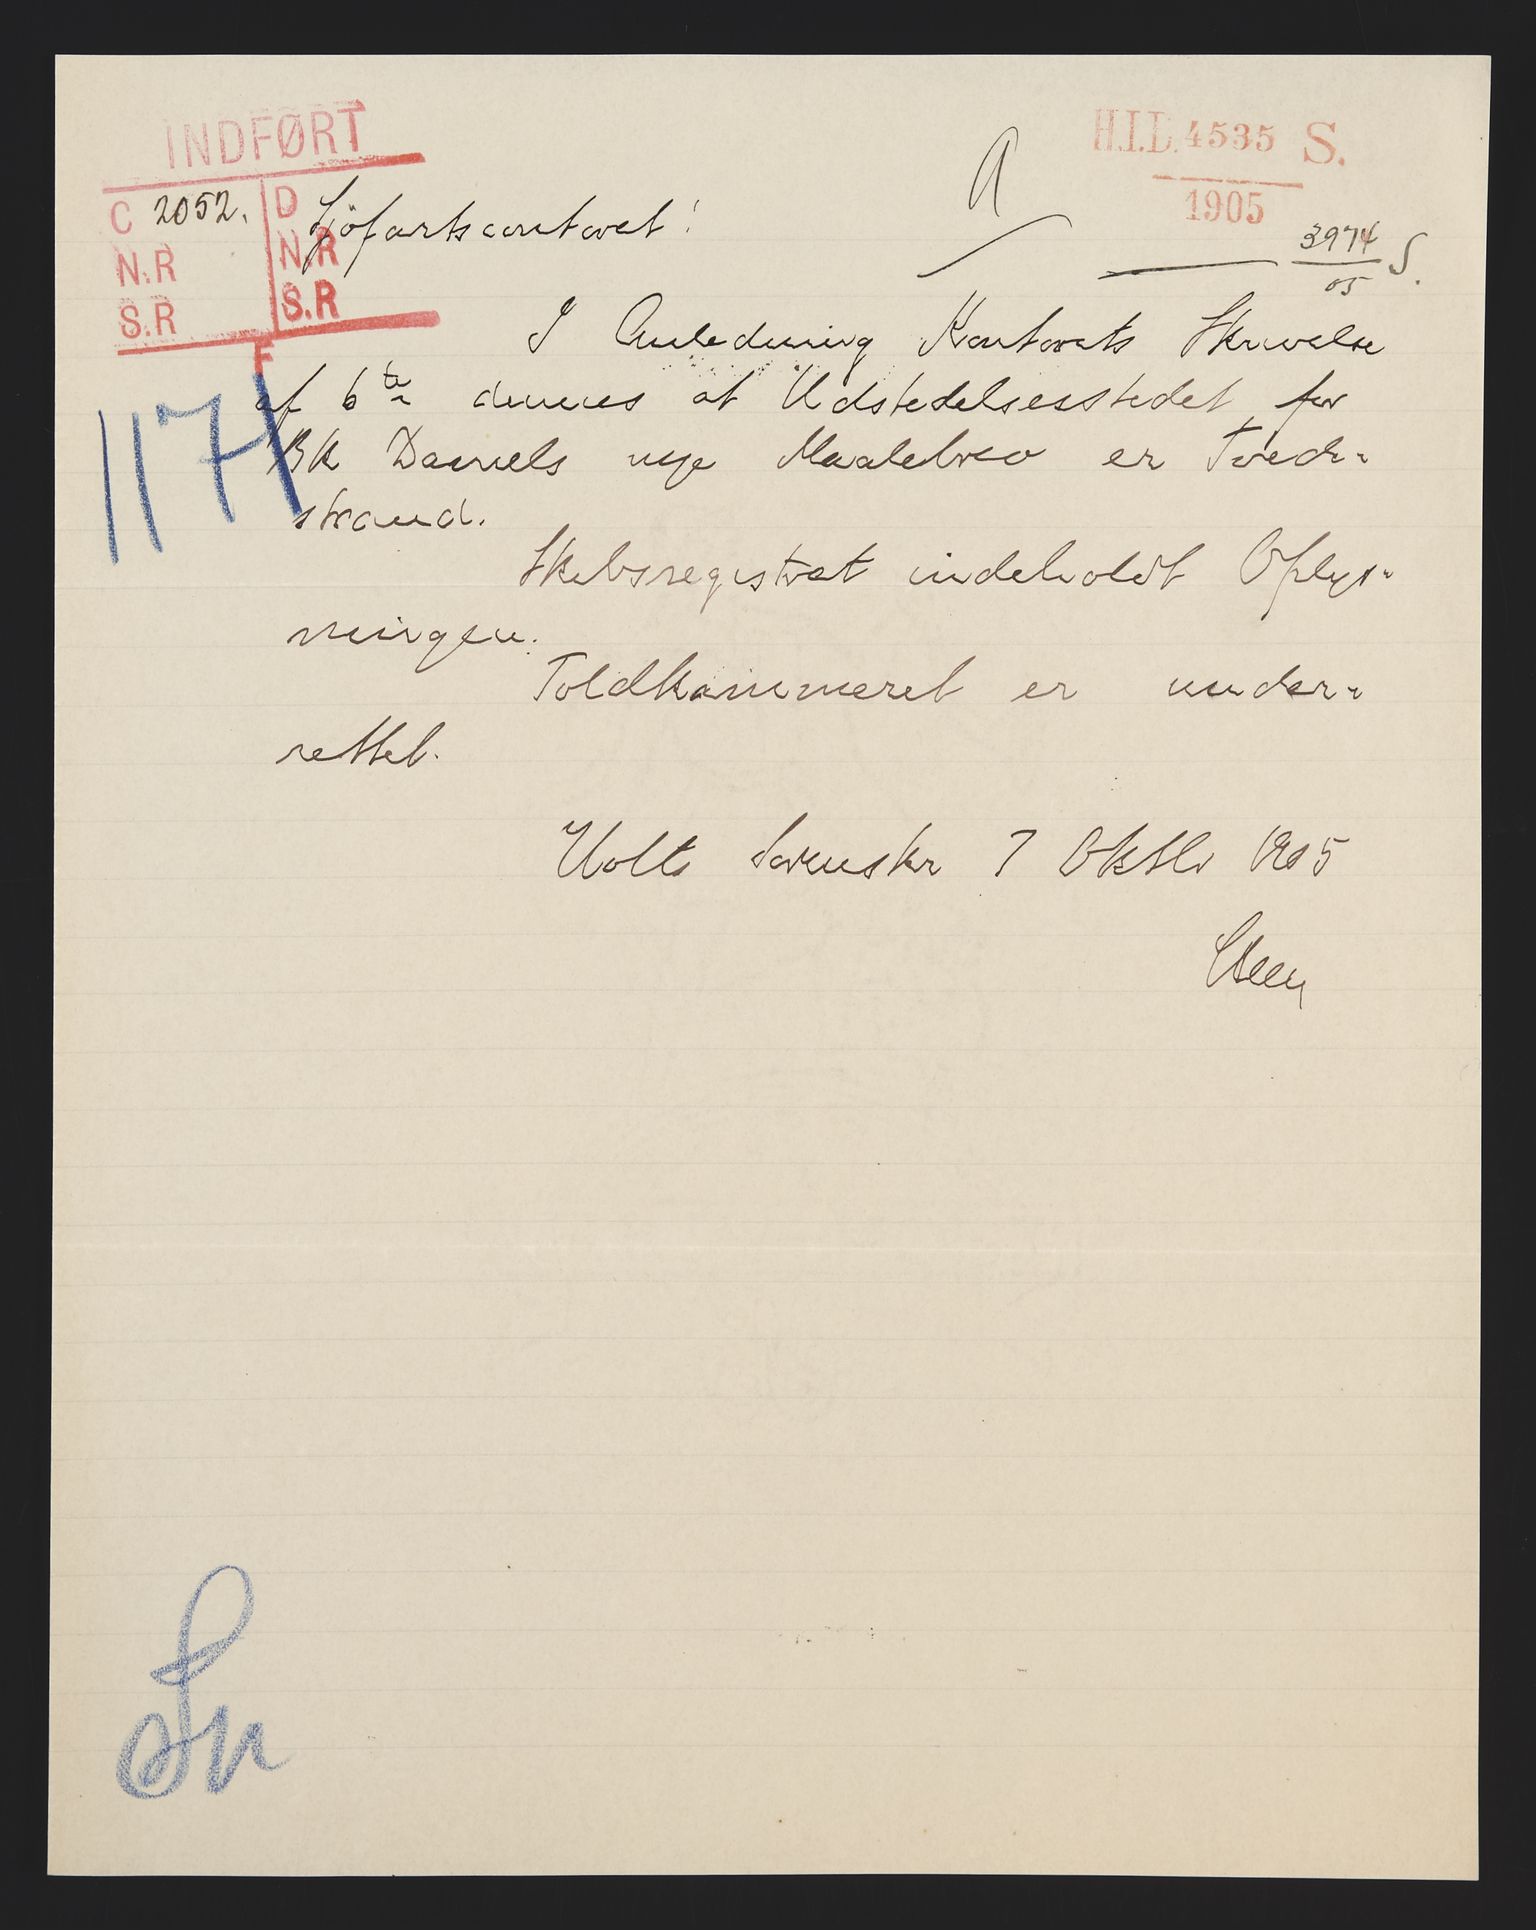 INDFØRT
H.I.D. 4535 S.
1905
C 2052. D
N.R N.R
S.R S.R
F
3974 S.
05
Sjöfartscontoret!
I Anledning Kontorets Skrivelse
af 6te dennes at Udstedelsesstedet for
BK Daniels nye Maalebrev er Tvede-
strand.
Skibsregistret indeholdt Oplys-
ningen.
Toldkammeret er under-
rettet.
Holts Sorenskr 7 Oktbr 1905
1171